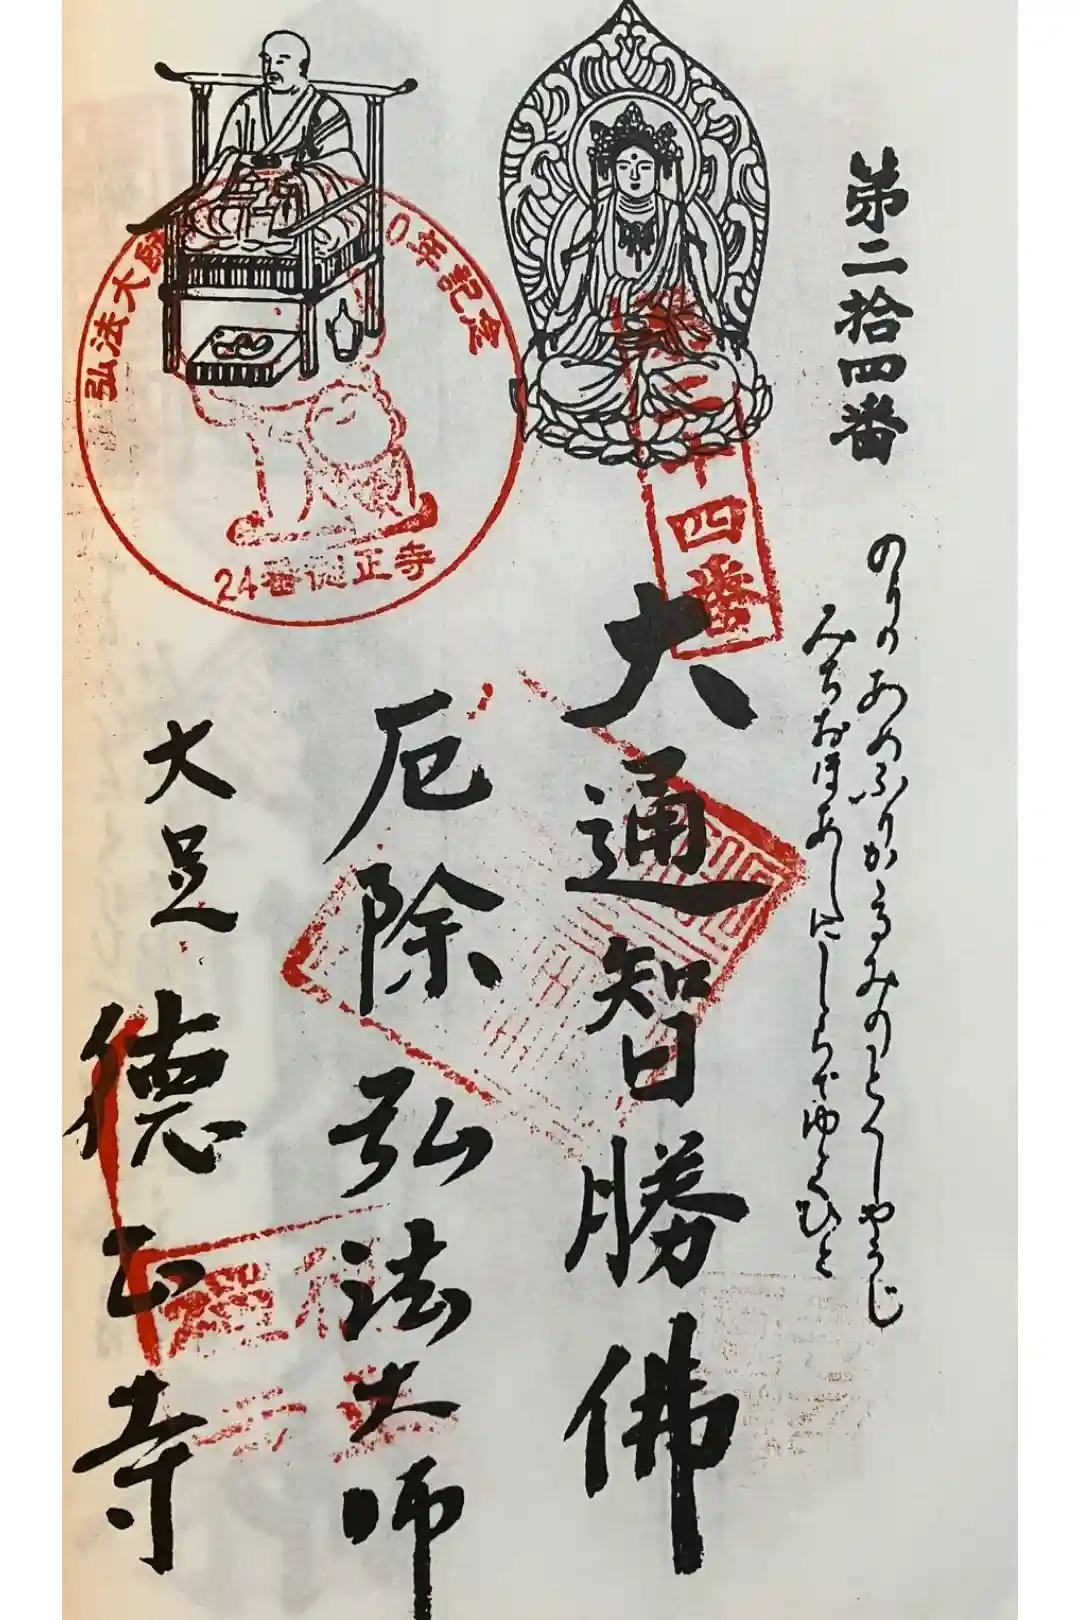 第二拾四番
のりのあめふりかゝるみのとくしやうじ
みちおほあしにしらでゆくひと
第二十四番
大通智勝佛
厄除弘法大師
大足
徳正寺
弘法大師
0年記念
24番徳正寺